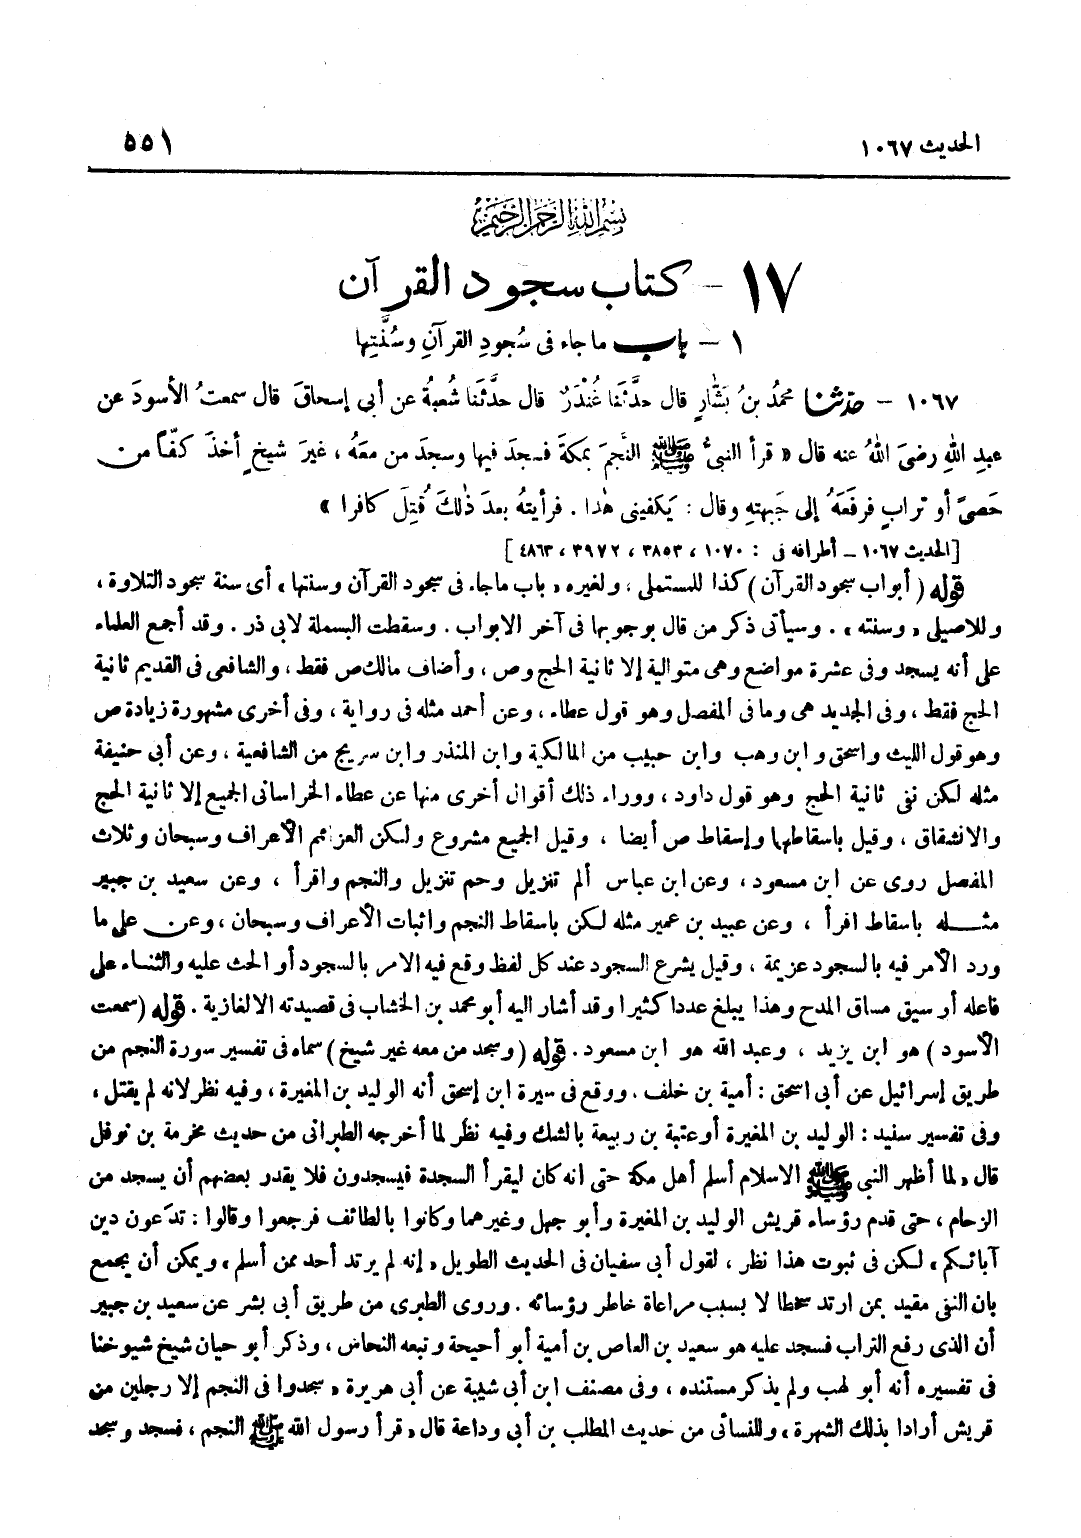 الحديث ١٠٦٧
٥٥١
بسم الله الرحمن الرحيم
١٧ - كتاب سجود القرآن
١ - باب ما جاء فى سُجودِ القرآنِ وسُنَّتِها
١٠٦٧ - حدثنا محمدُ بنُ بَشّارٍ قال حدَّثَنا غُنْدَرٌ قال حدَّثَنا شُعبةُ عن أبى إسحاقَ قال سمعتُ الأسودَ عن
عبدِ اللهِ رضىَ اللهُ عنه قال « قرأ النبىُّ ﷺ النَّجمَ بمكةَ فسجدَ فيها وسجدَ من معَهُ ، غيرَ شيخٍ أخذَ كفًّا من
حَصىً أو ترابٍ فرفَعَهُ إلى جَبهتهِ وقال : يَكفينى هٰذا . فرأيتهُ بعدَ ذٰلكَ قُتِلَ كافرا »
[الحديث ١٠٦٧ - أطرافه فى : ١٠٧٠ ، ٣٨٥٣ ، ٣٩٧٢ ، ٤٨٦٣]
قوله ( أبواب سجود القرآن ) كذا للمستملى ، ولغيره « باب ما جاء فى سجود القرآن وسنتها » أى سنة سجود التلاوة ،
وللاصيلى « وسنته » . وسيأتى ذكر من قال بوجوبها فى آخر الابواب . وسقطت البسملة لابى ذر . وقد أجمع العلماء
على أنه يسجد وفى عشرة مواضع وهى متوالية إلا ثانية الحج وص ، وأضاف مالك ص فقط ، والشافعى فى القديم ثانية
الحج فقط ، وفى الجديد هى وما فى المفصل وهو قول عطاء ، وعن أحمد مثله فى رواية ، وفى أخرى مشهورة زيادة ص
وهو قول الليث واسحق وابن وهب وابن حبيب من المالكية وابن المنذر وابن سريج من الشافعية ، وعن أبى حنيفة
مثله لكن نفى ثانية الحج وهو قول داود ، ووراء ذلك أقوال أخرى منها عن عطاء الخراسانى الجميع إلا ثانية الحج
والانشقاق ، وقيل باسقاطها وإسقاط ص أيضا ، وقيل الجميع مشروع ولكن العزائم الأعراف وسبحان وثلاث
المفصل روى عن ابن مسعود ، وعن ابن عباس ألم تنزيل وحم تنزيل والنجم واقرأ ، وعن سعيد بن جبير
مثله باسقاط اقرأ ، وعن عبيد بن عمير مثله لكن باسقاط النجم واثبات الأعراف وسبحان ، وعن على ما
ورد الأمر فيه بالسجود عزيمة ، وقيل يشرع السجود عند كل لفظ وقع فيه الامر بالسجود أو الحث عليه والثناء على
فاعله أو سيق مساق المدح وهذا يبلغ عددا كثيرا وقد أشار اليه أبو محمد بن الخشاب فى قصيدته الالغازية . قوله ( سمعت
الأسود ) هو ابن يزيد ، وعبد الله هو ابن مسعود . قوله ( وسجد من معه غير شيخ ) سماه فى تفسير سورة النجم من
طريق إسرائيل عن أبى اسحق : أمية بن خلف . ووقع فى سيرة ابن إسحق أنه الوليد بن المغيرة ، وفيه نظر لانه لم يقتل ،
وفى تفسير سنيد : الوليد بن المغيرة أو عتبة بن ربيعة بالشك وفيه نظر لما أخرجه الطبرانى من حديث مخرمة بن نوفل
قال « لما أظهر النبى ﷺ الاسلام أسلم أهل مكة حتى انه كان ليقرأ السجدة فيسجدون فلا يقدر بعضهم أن يسجد من
الزحام ، حتى قدم رؤساء قريش الوليد بن المغيرة وأبو جهل وغيرهما وكانوا بالطائف فرجعوا وقالوا : تدَعون دين
آبائكم » لكن فى ثبوت هذا نظر ، لقول أبى سفيان فى الحديث الطويل « إنه لم يرتد أحد ممن أسلم » ويمكن أن يجمع
بان النفى مقيد بمن ارتد سخطا لا بسبب مراعاة خاطر رؤسائه . وروى الطبرى من طريق أبى بشر عن سعيد بن جبير
أن الذى رفع التراب فسجد عليه هو سعيد بن العاص بن أمية أبو أحيحة وتبعه النحاس ، وذكر أبو حيان شيخ شيوخنا
فى تفسيره أنه أبو لهب ولم يذكر مستنده ، وفى مصنف ابن أبى شيبة عن أبى هريرة « سجدوا فى النجم إلا رجلين من
قريش أرادا بذلك الشهرة » وللنسائى من حديث المطلب بن أبى وداعة قال « قرأ رسول الله ﷺ النجم ، فسجد وسجد